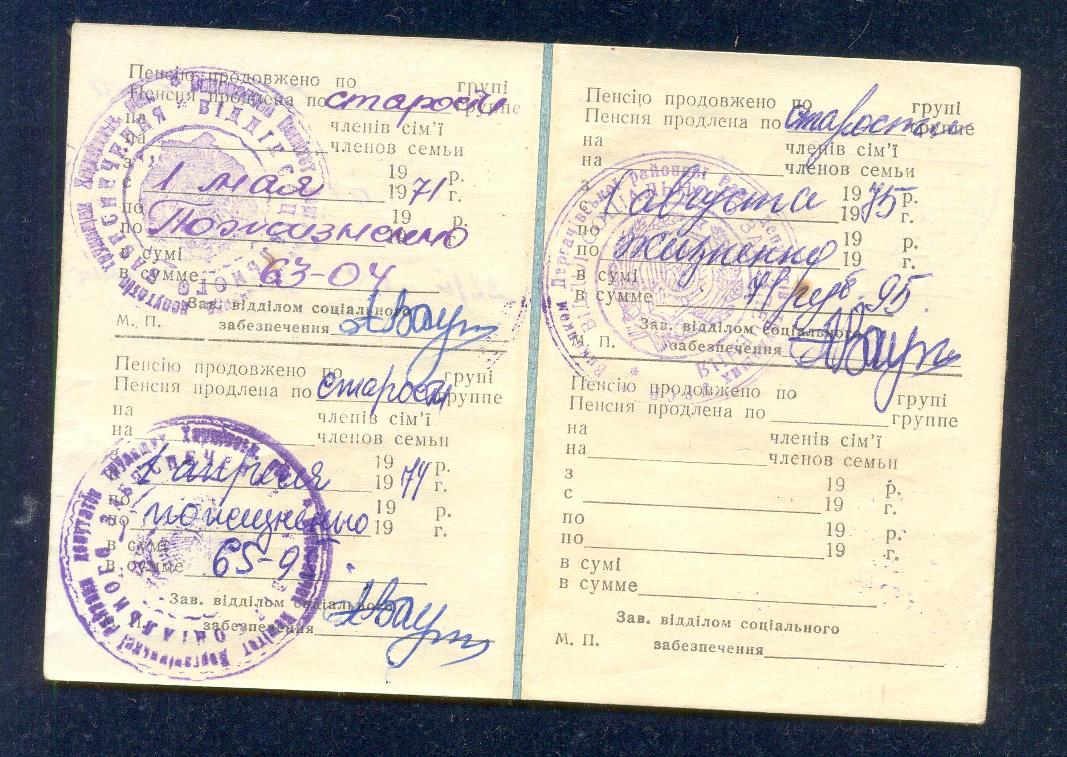 Пенсію продовжено по групі
Пенсия продлена по старости группе
на членів сім'ї
на членов семьи
з 19 р.
с 1 мая 1971 г.
по 19 р.
по Пожизненно 19 г.
в сумі
в сумме 63-04
Зав. відділом соціального
М. П. забезпечення
Пенсію продовжено по групі
Пенсия продлена по старости группе
на членів сім'ї
на членов семьи
19 р.
1 апреля 1974 г.
по 19 р.
по пожизненно 19 г.
в сумі
в сумме 65-9
Зав. відділом соціального
забезпечення
Пенсію продовжено по групі
Пенсия продлена по старости группе
на членів сім'ї
на членов семьи
з 19 р.
с 1 августа 1975 г.
по 19 р.
по жизненно 19 г.
в сумі
в сумме руб. 95
Зав. відділом соціального
М. П. забезпечення
Пенсію продовжено по групі
Пенсия продлена по группе
на членів сім'ї
на членов семьи
з 19 р.
с 19 г.
по 19 р.
по 19 г.
в сумі
в сумме
Зав. відділом соціального
М. П. забезпечення